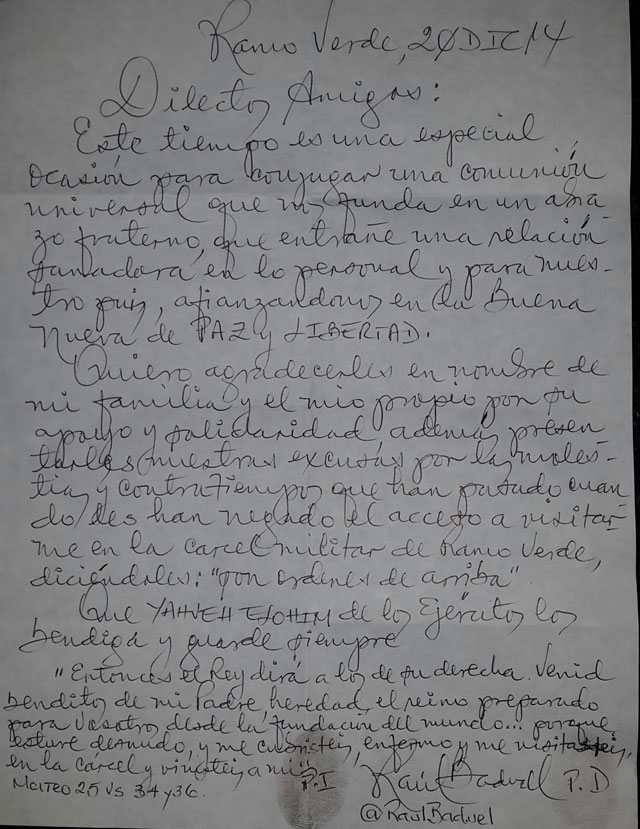 Ramo Verde, 24 DIC 14
Dilectos Amigos:
Este tiempo es una especial
ocasión para conjugar una comunión
universal que nos funda en un abra-
zo fraterno, que entrañe una relación
sanadora en lo personal y para nues-
tro país, afianzandonos en la Buena
Nueva de PAZ y LIBERTAD.
Quiero agradecerles en nombre de
mi familia y el mio propio por su
apoyo y solidaridad, además presen
tarles nuestras excusas por las moles-
tias y contratiempos que han pasado cuan-
do les han negado el acceso a visitar-
me en la carcel militar de Ramo Verde,
diciéndoles: "son ordenes de arriba".
Que YAHVEH ELOHIM de los Ejércitos los
bendiga y guarde siempre
"Entonces el Rey dirá a los de su derecha. Venid
benditos de mi Padre, heredad el reino preparado
para vosotros desde la fundación del mundo... porque
estuve desnudo, y me cubristeis, enfermo y me visitasteis,
en la carcel y vinisteis a mi"
Mateo 25 vs 34 y 36.
P.I Raúl Baduel P.D
@RaulBaduel